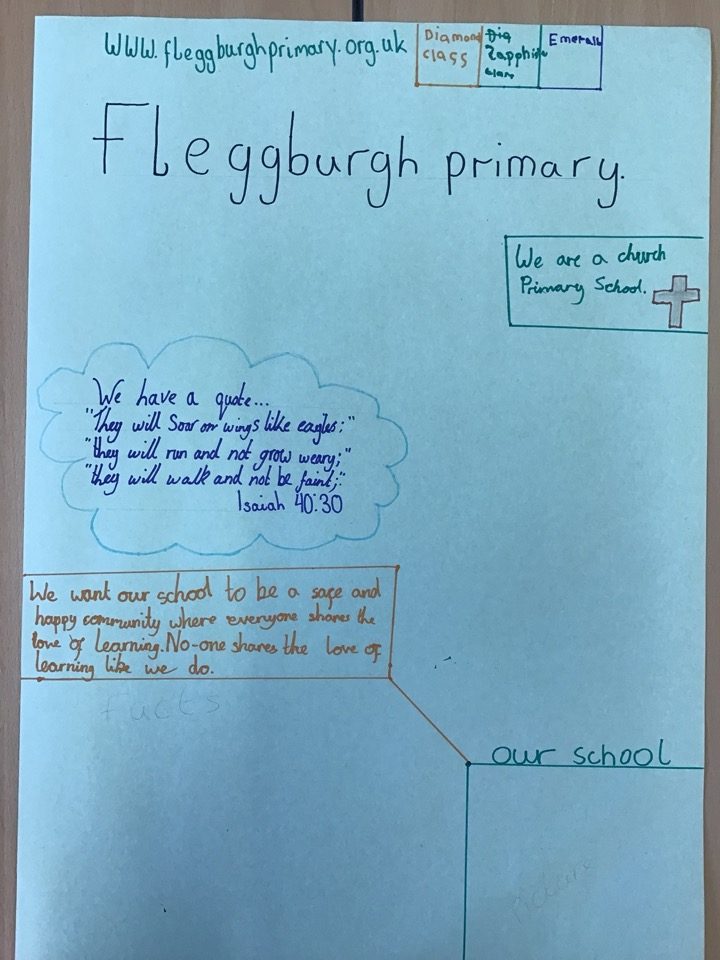 www.fleggburghprimary.org.uk
Diamond
class
Zapphire
class
Emerald
Fleggburgh primary.
We are a church
Primary School.
We have a quote...
"They will Soar on wings like eagles:"
"they will run and not grow weary;"
"they will walk and not be faint;"
Isaiah 40:30
We want our school to be a safe and
happy community where everyone shares the
love of learning. No-one shares the love of
learning like we do.
facts
our school
picture